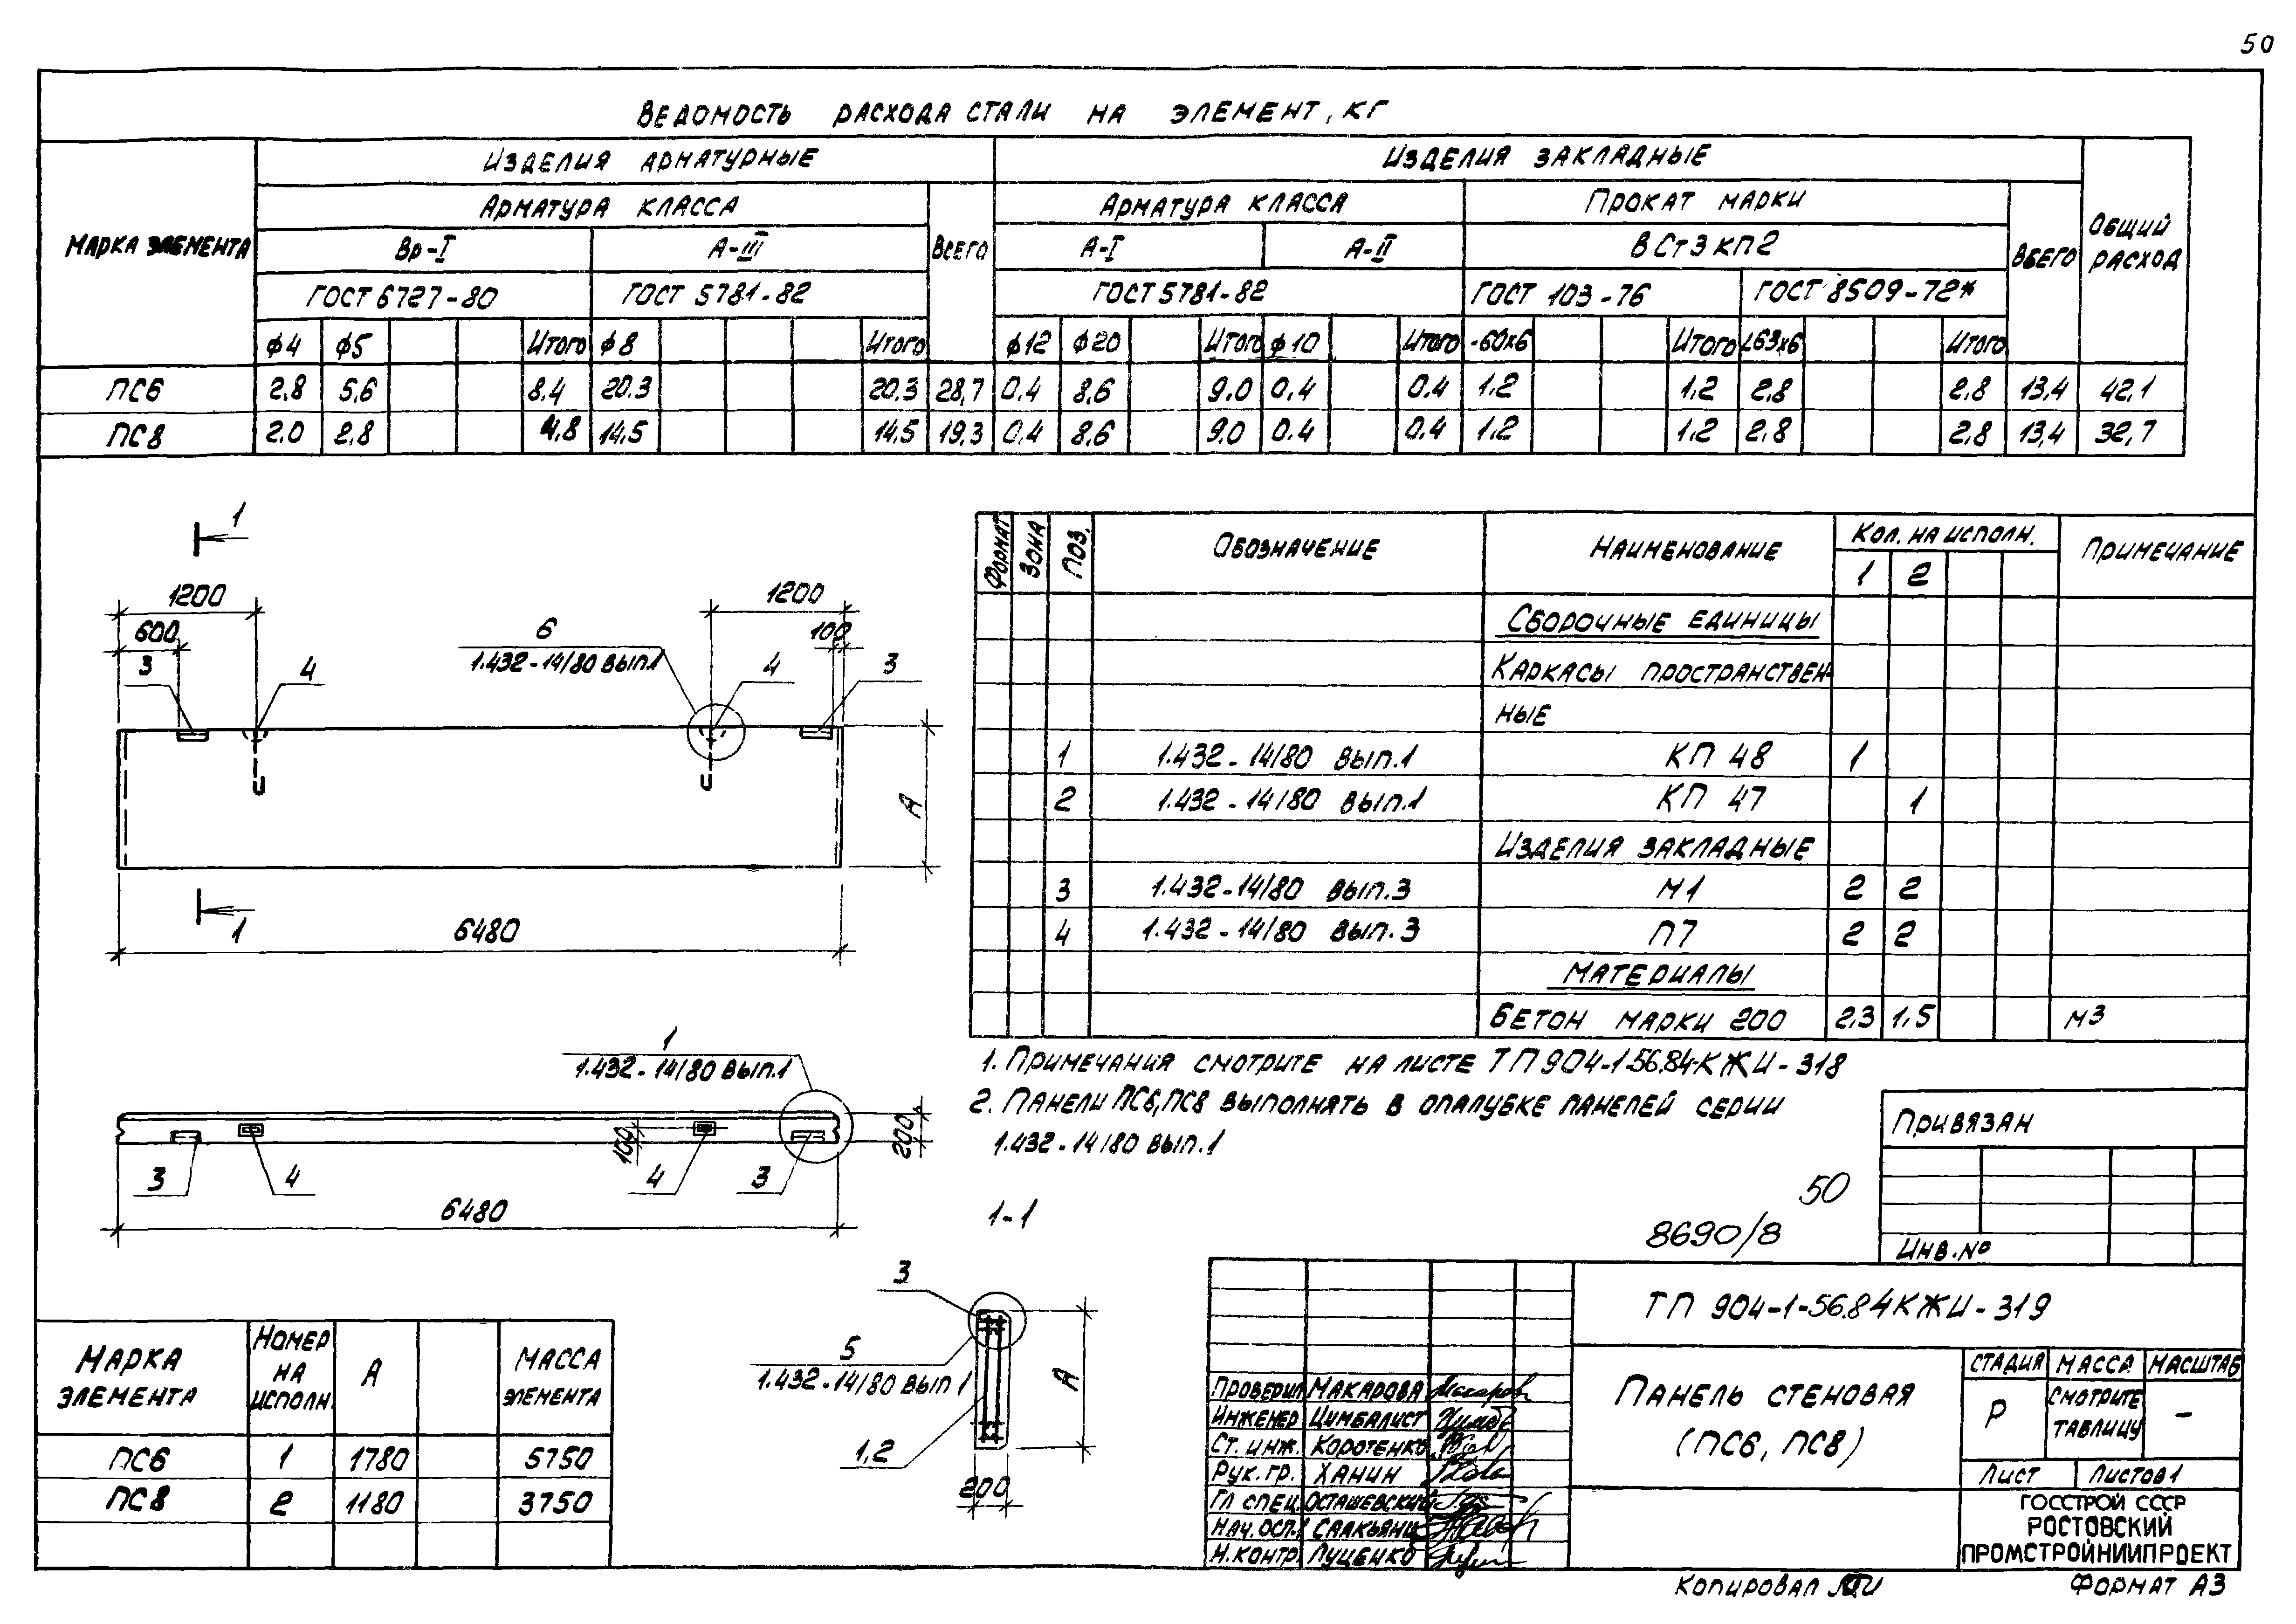 50
Ведомость расхода стали на элемент, кг
Марка элемента
Изделия арматурные
Изделия закладные
Общий расход
Арматура класса
Всего
Арматура класса
Прокат марки
Всего
Вр-I
А-III
А-I
А-II
ВСт3кп2
ГОСТ 6727-80
ГОСТ 5781-82
ГОСТ 5781-82
ГОСТ 103-76
ГОСТ 8509-72*
ф4 ф5 Итого ф8 Итого ф12 ф20 Итого ф10 Итого -60х6 Итого ∠63х6 Итого
ПС6 2.8 5,6 8,4 20.3 20,3 28,7 0.4 8,6 9.0 0,4 0.4 1,2 1,2 2,8 2,8 13,4 42,1
ПС8 2.0 2,8 4,8 14,5 14,5 19,3 0.4 8,6 9.0 0.4 0.4 1.2 1,2 2.8 2,8 13,4 32,7
1
1200
1200
600
100
6
1.432-14/80 вып.1
3
4
4
3
А
1
6480
Формат Зона Поз. Обозначение Наименование Кол. на исполн. Примечание
1 2
Сборочные единицы
Каркасы пространствен-
ные
1 1.432-14/80 вып.1 КП 48 1
2 1.432-14/80 вып.1 КП 47 1
Изделия закладные
3 1.432-14/80 вып.3 М1 2 2
4 1.432-14/80 вып.3 П7 2 2
Материалы
Бетон марки 200 2,3 1,5 м3
1. Примечания смотрите на листе ТП904-1-56.84-КЖИ-318
2. Панели ПС6, ПС8 выполнять в опалубке панелей серии
1.432-14/80 вып.1
1
1.432-14/80 вып.1
200
100
3
4
4
3
6480
Привязан
Инв.№
50
8690/8
1-1
3
5
1.432-14/80 вып 1
1,2
А
200
Марка элемента
Номер на исполн.
А
Масса элемента
ПС6 1 1780 5750
ПС8 2 1180 3750
ТП 904-1-56.84КЖИ-319
Панель стеновая
(ПС6, ПС8)
Стадия Масса Масштаб
Р Смотрите таблицу –
Лист Листов 1
ГОССТРОЙ СССР
РОСТОВСКИЙ
ПРОМСТРОЙНИИПРОЕКТ
Проверил Макарова
Инженер Цимбалист
Ст. инж. Коротенко
Рук. гр. Ханин
Гл спец. Осташевский
Нач. осп.1 Саакьянц
Н.контр. Луценко
Копировал
Формат А3